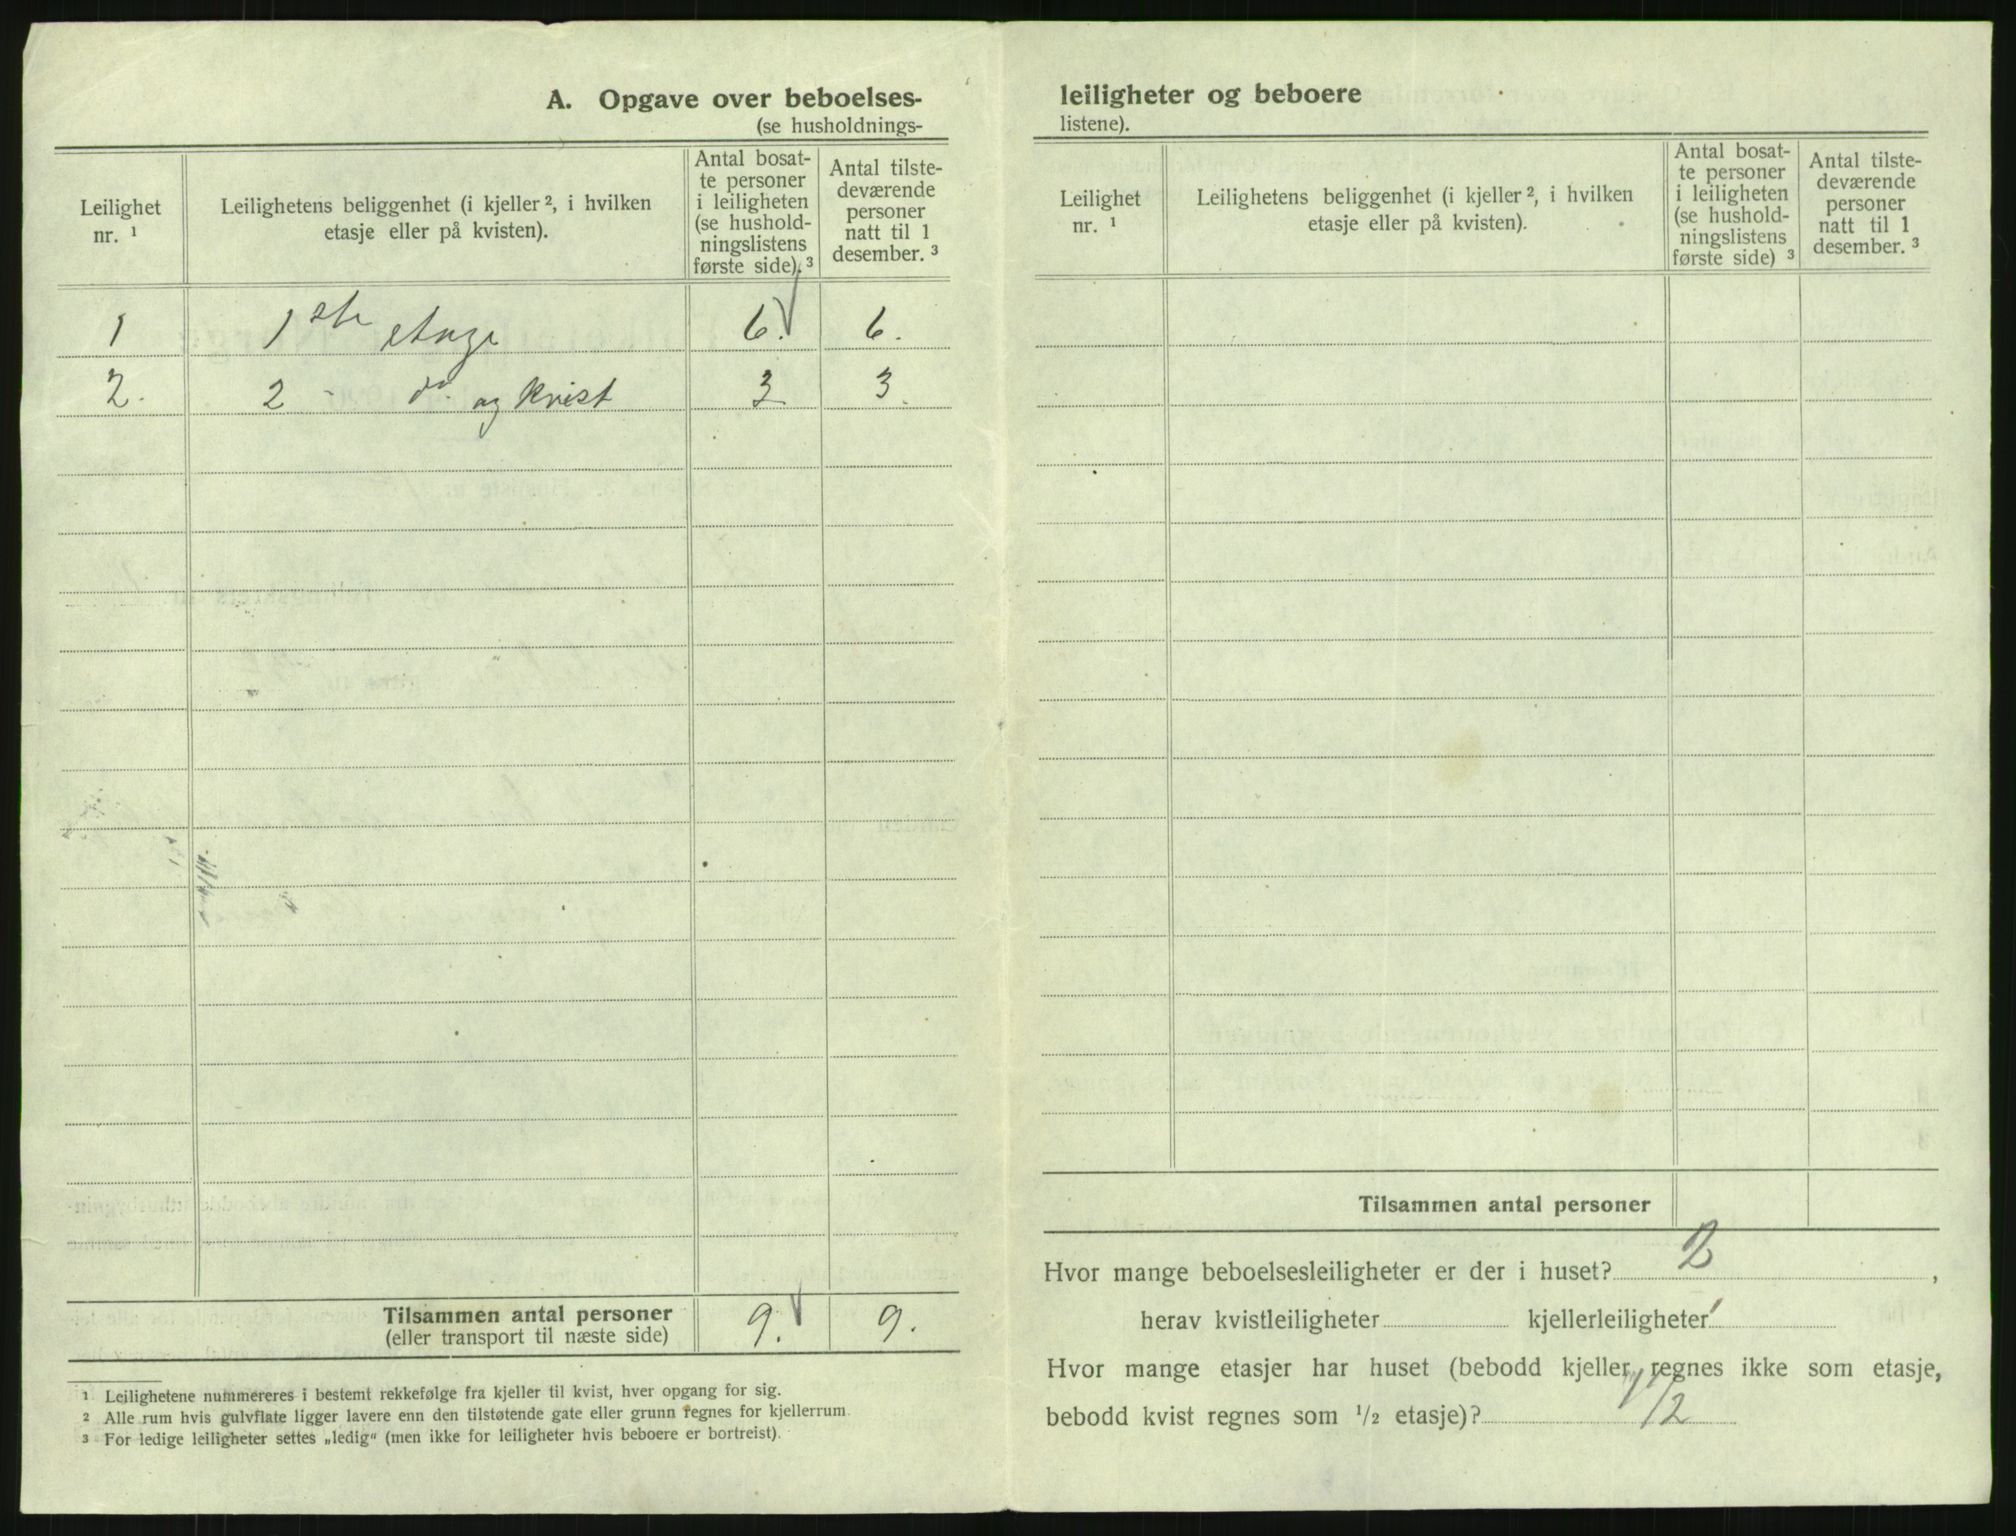 A. Opgave over beboelses-
(se husholdnings-
Leilighet nr. ¹
Leilighetens beliggenhet (i kjeller ², i hvilken
etasje eller på kvisten).
Antal bosat-
te personer
i leiligheten
(se hushold-
ningslistens
første side). ³
Antal tilste-
deværende
personer
natt til 1
desember. ³
1 1ste etage 6. 6.
2. 2 - do. og kvist 3 3.
Tilsammen antal personer 9. 9.
(eller transport til næste side)
¹ Leilighetene nummereres i bestemt rekkefølge fra kjeller til kvist, hver opgang for sig.
² Alle rum hvis gulvflate ligger lavere enn den tilstøtende gate eller grunn regnes for kjellerrum.
³ For ledige leiligheter settes „ledig“ (men ikke for leiligheter hvis beboere er bortreist).
leiligheter og beboere
listene).
Leilighet
nr. ¹
Leilighetens beliggenhet (i kjeller ², i hvilken
etasje eller på kvisten).
Antal bosat-
te personer
i leiligheten
(se hushold-
ningslistens
første side) ³
Antal tilste-
deværende
personer
natt til 1
desember. ³
Tilsammen antal personer
Hvor mange beboelsesleiligheter er der i huset? 2 ,
herav kvistleiligheter kjellerleiligheter
Hvor mange etasjer har huset (bebodd kjeller regnes ikke som etasje,
bebodd kvist regnes som ¹/₂ etasje)?